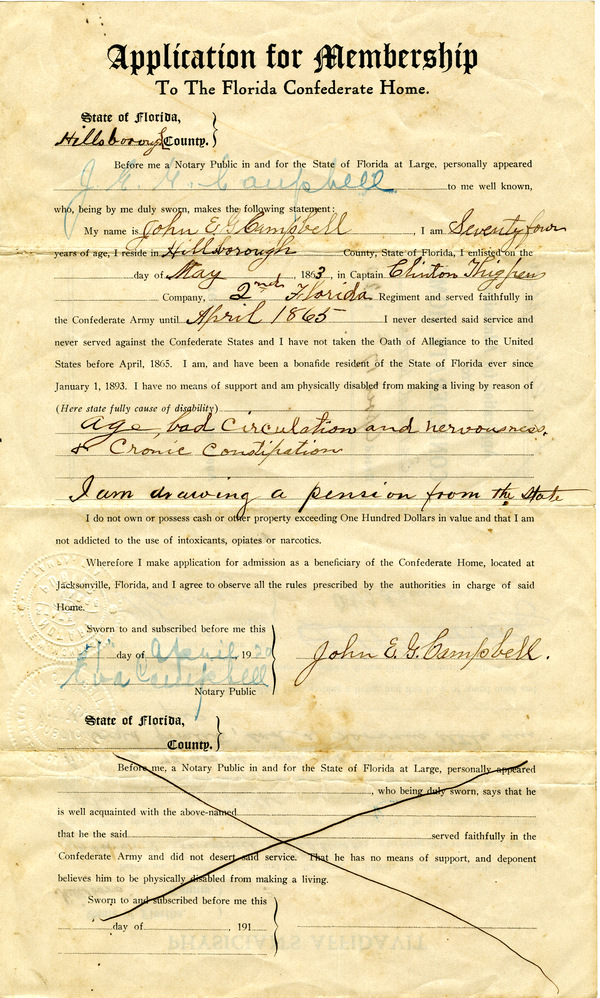 Application for Membership
To The Florida Confederate Home.
State of Florida,
Hillsborough County.
Before me a Notary Public in and for the State of Florida at Large, personally appeared
J E. G. Campbell to me well known,
who, being by me duly sworn, makes the following statement:
My name is John E G Campbell, I am Seventy four
years of age, I reside in Hillsborough County, State of Florida, I enlisted on the
day of May, 1863, in Captain Clinton Thigpen
Company, 2nd Florida Regiment and served faithfully in
the Confederate Army until April 1865 I never deserted said service and
never served against the Confederate States and I have not taken the Oath of Allegiance to the United
States before April, 1865. I am, and have been a bonafide resident of the State of Florida ever since
January 1, 1893. I have no means of support and am physically disabled from making a living by reason of
(Here state fully cause of disability)
age, bad circulation and nervousness.
& Cronic Constipation
I am drawing a pension from the State
I do not own or possess cash or other property exceeding One Hundred Dollars in value and that I am
not addicted to the use of intoxicants, opiates or narcotics.
Wherefore I make application for admission as a beneficiary of the Confederate Home, located at
Jacksonville, Florida, and I agree to observe all the rules prescribed by the authorities in charge of said
Home.
Sworn to and subscribed before me this
day of April 1920
John E. G. Campbell.
Eva Campbell
Notary Public
State of Florida,
County.
Before me, a Notary Public in and for the State of Florida at Large, personally appeared
, who being duly sworn, says that he
is well acquainted with the above-named
that he the said served faithfully in the
Confederate Army and did not desert said service. That he has no means of support, and deponent
believes him to be physically disabled from making a living.
Sworn to and subscribed before me this
day of , 191